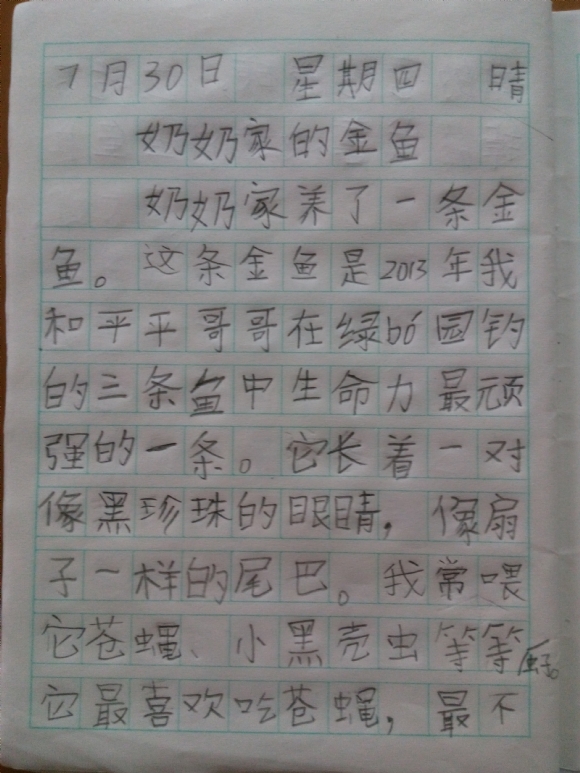 7月30日 星期四 晴
奶奶家的金鱼
奶奶家养了一条金
鱼。这条金鱼是2013年我
和平平哥哥在绿bó园钓
的三条鱼中生命力最顽
强的一条。它长着一对
像黑珍珠的眼睛，像扇
子一样的尾巴。我常喂
它苍蝇、小黑壳虫等等
它最喜欢吃苍蝇，最不